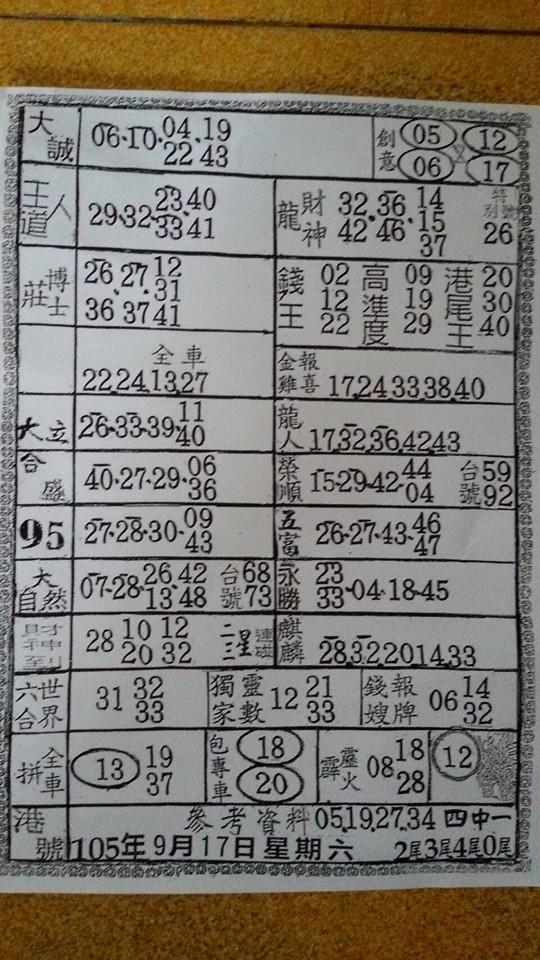 大誠 06·10·04·19
22 43
創意 05 12
06 X 17
王人道 23·40
29·32·33·41
龍 財神 32·36·14 特別號
42·46·15 26
37
莊 博士 26·27·12
31
36·37·41
錢王 02 12 22
高準度 09 19 29
港尾王 20 30 40
全車
22.24.13.27
金雞報喜 17.24.33.38.40
大立 26·33·39·11
40
龍人 17.32.36.42.43
合盛 40·27·29·06
36
榮順 15·29·42·44 台號 59
04 92
95 27·28·30·09
43
五富 26·27·43·46
47
大自然 07·28·26·42 台號 68
13·48 73
永勝 23
33·04·18·45
財神到 28 10 12 二三星連碰
20 32
麒麟 28.32.20.14.33
六合世界 31 32
33
獨家靈數 12 21
33
錢嫂報牌 06 14
32
拼全車 13 19
37
包專車 18
20
霹靂火 08 18
28
12
港號 參考資料 05.19.27.34 四中一
105年9月17日星期六 2尾3尾4尾0尾